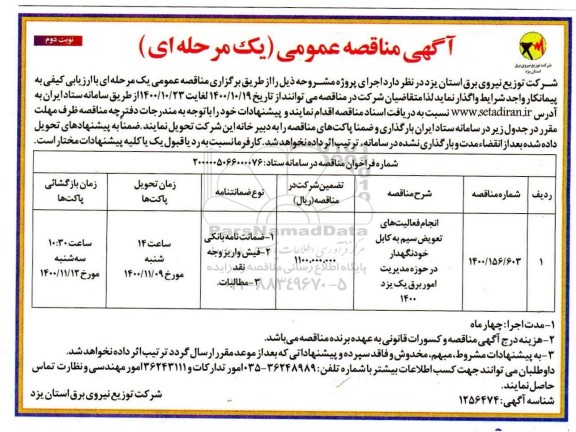 نوبت دوم
آگهی مناقصه عمومی (یک مرحله ای)
شرکت توزیع نیروی برق
استان یزد
شرکت توزیع نیروی برق استان یزد در نظر دارد اجرای پروژه مشروحه ذیل را از طریق برگزاری مناقصه عمومی یک مرحله ای با ارزیابی کیفی به
پیمانکار واجد شرایط واگذار نماید لذا متقاضیان شرکت در مناقصه می توانند از تاریخ ۱۴۰۰/۱۰/۱۹ لغایت ۱۴۰۰/۱۰/۲۳ از طریق سامانه ستاد ایران به
آدرس www.setadiran.ir نسبت به دریافت اسناد مناقصه اقدام نمایند و پیشنهادات خود را با توجه به مندرجات دفترچه مناقصه ظرف مهلت
مقرر در جدول زیر در سامانه ستاد ایران بارگذاری و ضمنا پاکت های مناقصه را به دبیر خانه این شرکت تحویل نمایند. ضمنا به پیشنهادهای تحویل
داده شده بعد از انقضاء مدت و بارگذاری نشده در سامانه، ترتیب اثر داده نخواهد شد. کارفرما نسبت به رد یا قبول یک یا کلیه پیشنهادات مختار است.
شماره فراخوان مناقصه در سامانه ستاد: ۲۰۰۰۰۰۵۰۶۶۰۰۰۰۷۶
ردیف شماره مناقصه شرح مناقصه تضمین شرکت در مناقصه (ریال) نوع ضمانتنامه زمان تحویل پاکت ها زمان بازگشائی پاکت ها
۱ ۱۴۰۰/۱۵۶/۶۰۳ انجام فعالیت های تعویض سیم به کابل خودنگهدار در حوزه مدیریت امور برق یک یزد ۱۴۰۰ ۱۱۰۰.۰۰۰.۰۰۰ ۱-ضمانت نامه بانکی ۲-فیش واریز وجه نقد ۳-مطالبات. ساعت ۱۴ شنبه مورخ ۱۴۰۰/۱۱/۰۹ ساعت ۱۰:۳۰ سه شنبه مورخ ۱۴۰۰/۱۱/۱۲
ParsNamadData
پایگاه اطلاع رسانی مناقصه و مزایده
۰۲۱-۸۸۳۴۹۶۷۰-۵
۱-مدت اجرا: چهار ماه
۲-هزینه درج آگهی مناقصه و کسورات قانونی به عهده برنده مناقصه می باشد.
۳-به پیشنهادات مشروط، مبهم، مخدوش و فاقد سپرده و پیشنهاداتی که بعد از موعد مقرر ارسال گردد ترتیب اثر داده نخواهد شد.
داوطلبان می توانند جهت کسب اطلاعات بیشتر با شماره تلفن: ۳۶۲۴۸۹۸۹-۰۳۵ امور تدارکات و ۳۶۲۴۳۱۱۱ امور مهندسی و نظارت تماس
حاصل نمایند.
شناسه آگهی: ۱۲۵۶۴۷۴
شرکت توزیع نیروی برق استان یزد